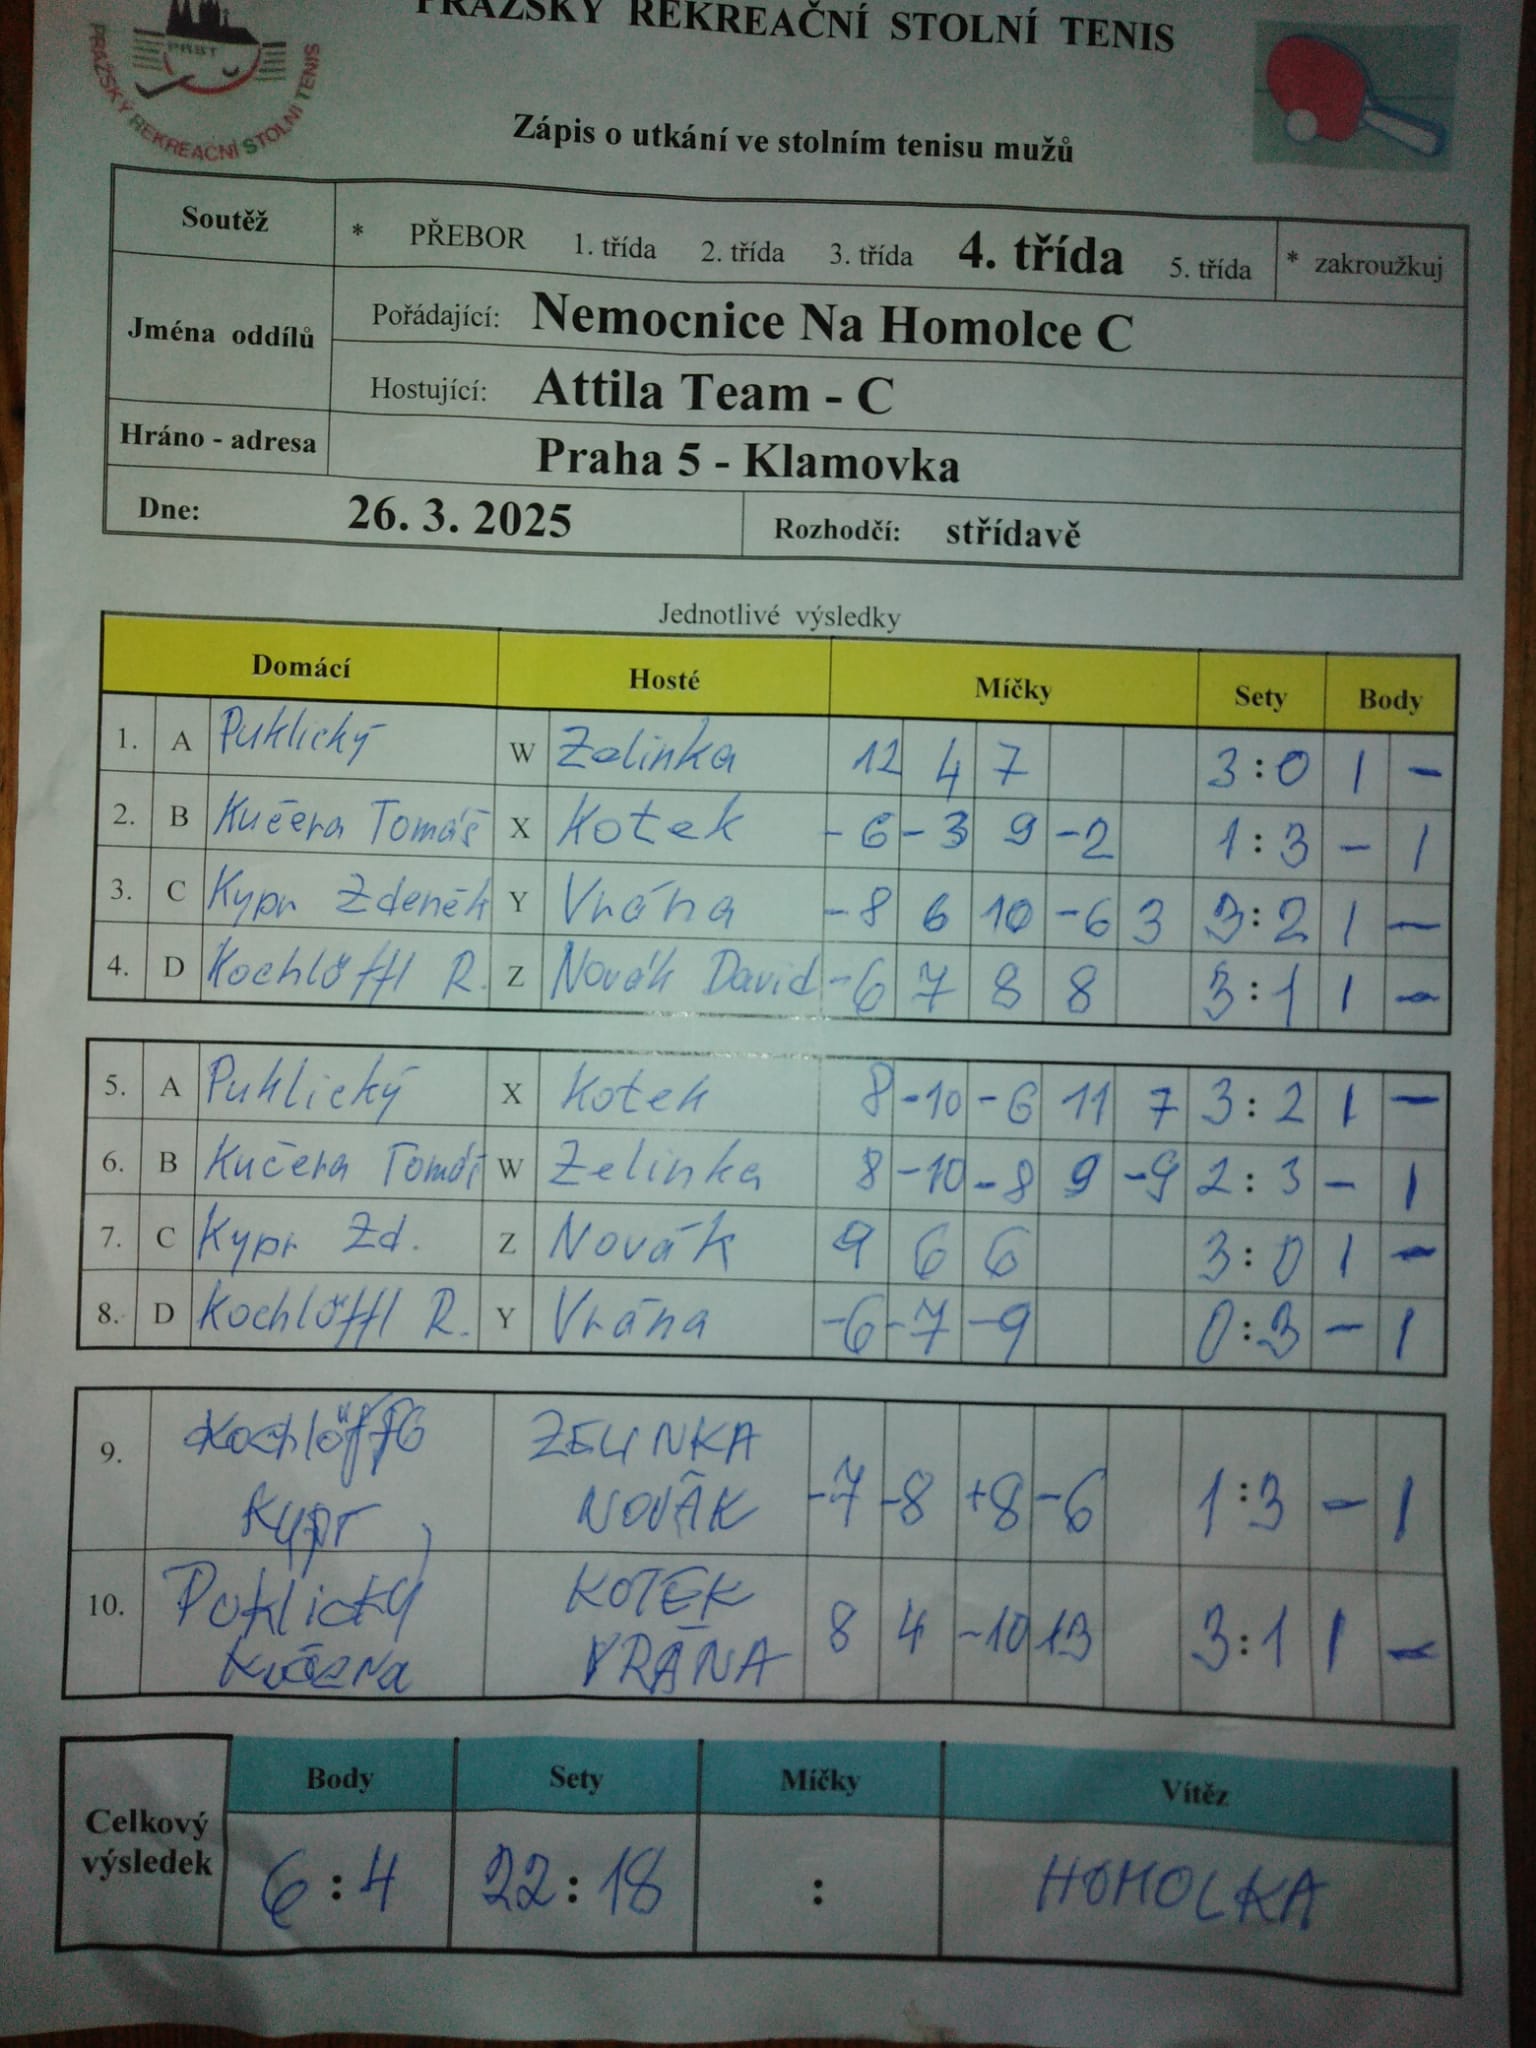 PRAŽSKÝ REKREAČNÍ STOLNÍ TENIS
PRAŽSKÝ REKREAČNÍ STOLNÍ TENIS
Zápis o utkání ve stolním tenisu mužů
Soutěž * PŘEBOR 1. třída 2. třída 3. třída 4. třída 5. třída * zakroužkuj
Jména oddílů
Pořádající: Nemocnice Na Homolce C
Hostující: Attila Team - C
Hráno - adresa Praha 5 - Klamovka
Dne: 26. 3. 2025 Rozhodčí: střídavě
Jednotlivé výsledky
Domácí Hosté Míčky Sety Body
1. A Puklický W Zelinka 12 4 7 3:0 1 -
2. B Kučera Tomáš X Kotek -6 -3 9 -2 1:3 - 1
3. C Kypr Zdeněk Y Vrána -8 6 10 -6 3 3:2 1 -
4. D Kochlöffl R. Z Novák David -6 7 8 8 3:1 1 -
5. A Puklický X Kotek 8 -10 -6 11 7 3:2 1 -
6. B Kučera Tomáš W Zelinka 8 -10 -8 9 -9 2:3 - 1
7. C Kypr Zd. Z Novák 9 6 6 3:0 1 -
8. D Kochlöffl R. Y Vrána -6 -7 -9 0:3 - 1
9. Kochlöffl ZELINKA
Kypr NOVÁK -7 -8 +8 -6 1:3 - 1
10. Puklický KOTEK
Kučera VRÁNA 8 4 -10 13 3:1 1 -
Celkový výsledek
Body Sety Míčky Vítěz
6:4 22:18 : HOMOLKA